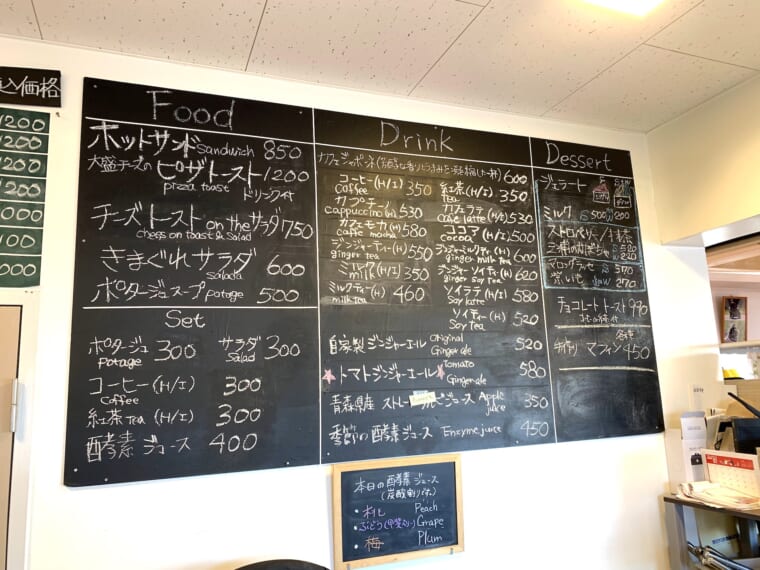 込価格
1200
1200
1200
1200
1000
1000
000
Food
ホットサンド Sandwich 850
大盛チーズの ピザトースト 1200
pizza toast ドリンク付
チーズトースト on the サラダ 750
chees on toast & Salad
きまぐれサラダ 600
Salada
ポタージュスープ potage 500
Set
ポタージュ 300 サラダ 300
Potage Salad
コーヒー (H/I) 300
Coffee
紅茶 Tea (H/I) 300
酵素ジュース 400
Drink
600
コーヒー (H/I) 350
coffee
カプチーノ
cappuccino (H) 530
カフェモカ (H) 580
caffe mocha
ジンジャーティー (H) 550
ginger tea
ミルク (H/I) 350
milk
ミルクティー (H) 460
milk tea
紅茶 (H/I) 350
tea
カフェラテ (H/I) 530
cafe latte
ココア (H/I) 500
cocoa
ジンジャーミルクティー (H) 600
ginger milk tea
ジンジャーソイティー (H) 620
ginger Soy tea
ソイラテ (H/I) 580
Soy latte
ソイティー (H) 520
Soy Tea
自家製 ジンジャーエール Original Ginger ale 520
トマトジンジャーエール Tomato Gingerale 580
青森県産 ストレート ジュース Apple juice 350
季節の酵素ジュース Enzyme juice 450
Dessert
ジェラート
ミルク S 500 200
ストロベリー/抹茶
570
270
チョコレートトースト 970
手作り マフィン 各種 450
本日の酵素ジュース
(炭酸割りバチ)
・桃 Peach
・ぶどう Grape
・梅 Plum